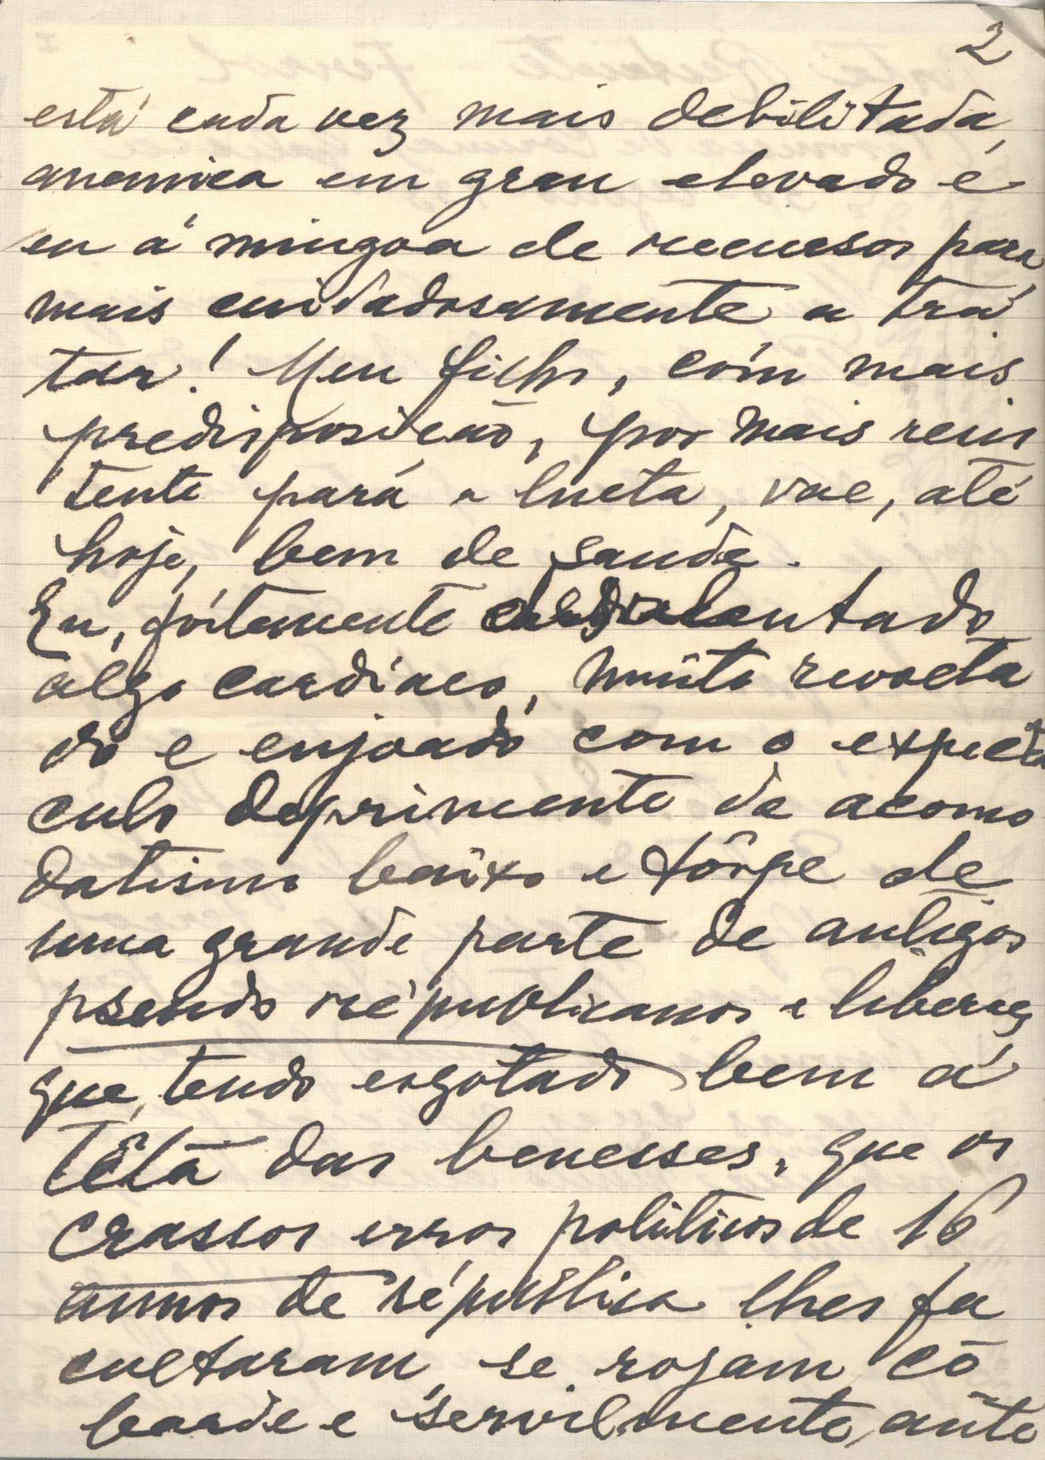 2
está cada vez mais debilitada,
anemica em grau elevado e
eu á mingoa de recursos para
mais cuidadosamente a tra
tar! Meu filho, com mais
predisposicão, por mais resis
tente pará a lucta, vae, até
hoje, bem de saude.
Eu, fortemente
algo cardiaco, muito revolta
do e enjoado com o expecta
culo deprimente de acomo
datismo baixo e tôrpe de
uma grande parte de antigos
pseudo républicanos e liberaes
que, tendo esgotado bem á
têta das benesses, que os
crassos erros politicos de 16
annos de república lhes fa
cultaram, se rojam co
barde e servilmente ante